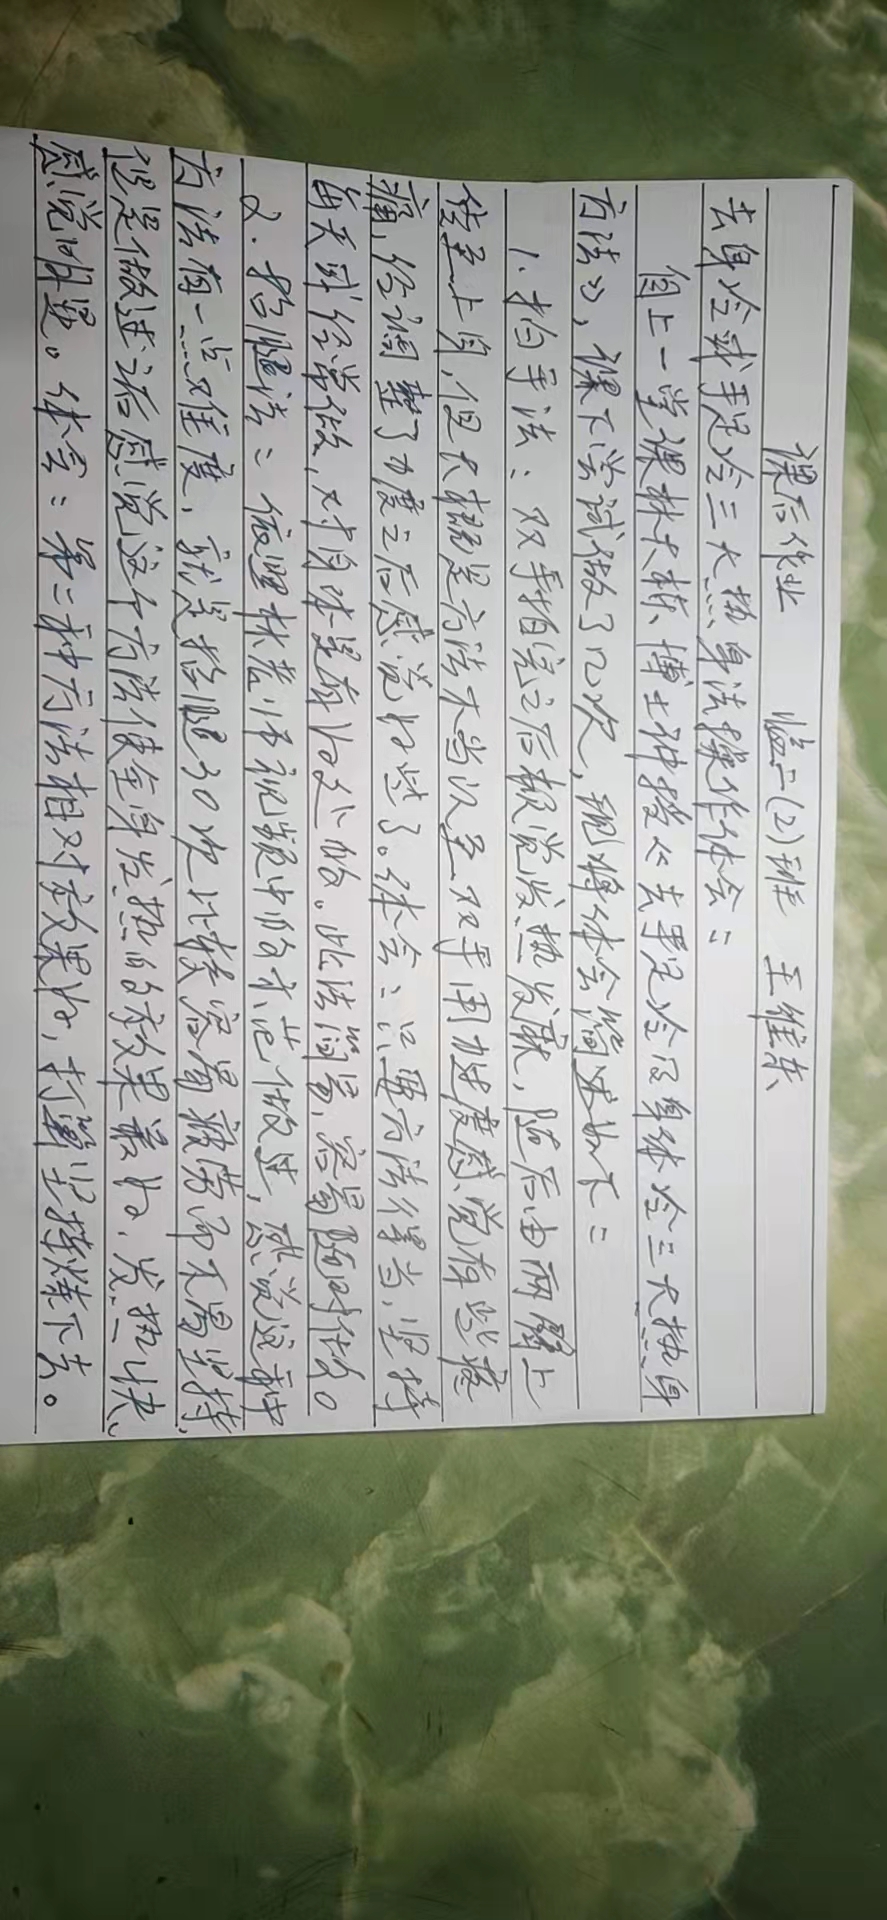 课后作业 临六(2)班 王维东
去身冷或手足冷三大热身法操作体会：
自上一堂课林大栋博士神授《去手足冷及身体冷三大热身
方法》，课下尝试做了几次，现将体会简述如下：
1.拍手法：双手拍完之后极觉发热发麻，随后由两臂上
传至上身，但大概是方法不当以至双手用力过度感觉有些疼
痛，经调整了力度之后感觉好些了。体会：只要方法得当，坚持
每天或经常做，对身体是有好处的。此法简易，容易随时做。
2.抬腿法：依照林老师视频中的示范做过，感觉这种
方法有一点难度，就是抬腿30次比较容易疲劳而不易坚持，
但是做过之后感觉这个方法使全身发热的效果最好，发热快，
感觉明显。体会：第二种方法相对效果好，打算坚持练下去。